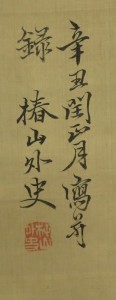 辛丑閏正月寫并
錄　椿山外史